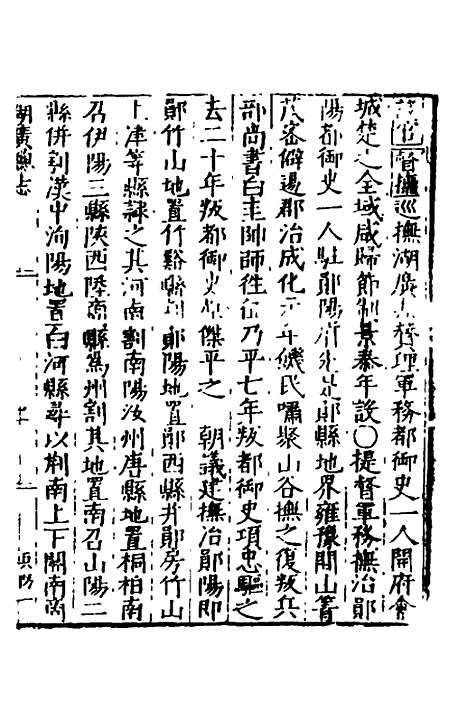 督撫巡撫湖廣督理軍務都御史一人開府會
城楚之全域咸歸節制景泰年設〇提督軍務撫治鄖
陽都御史一人駐鄖陽府先是鄖縣地界雍豫間山箐
茂密僻邊郡治成化元年饑民嘯聚山谷撫之復叛兵
部尚書白圭帥師徃征乃平七年叛都御史項忠驅之
去二十年叛都御史傑平之 朝議建撫治鄖陽即
鄖竹山地置竹谿縣割鄖陽地置鄖西縣并鄖房竹山
上津等縣隸之其河南割南陽汝州唐縣地置桐柏南
召伊陽三縣陝西陞商縣為州割其地置南召山陽二
縣併割漢中洵陽地置白河縣尋以荊南上下關南商
湖廣總志